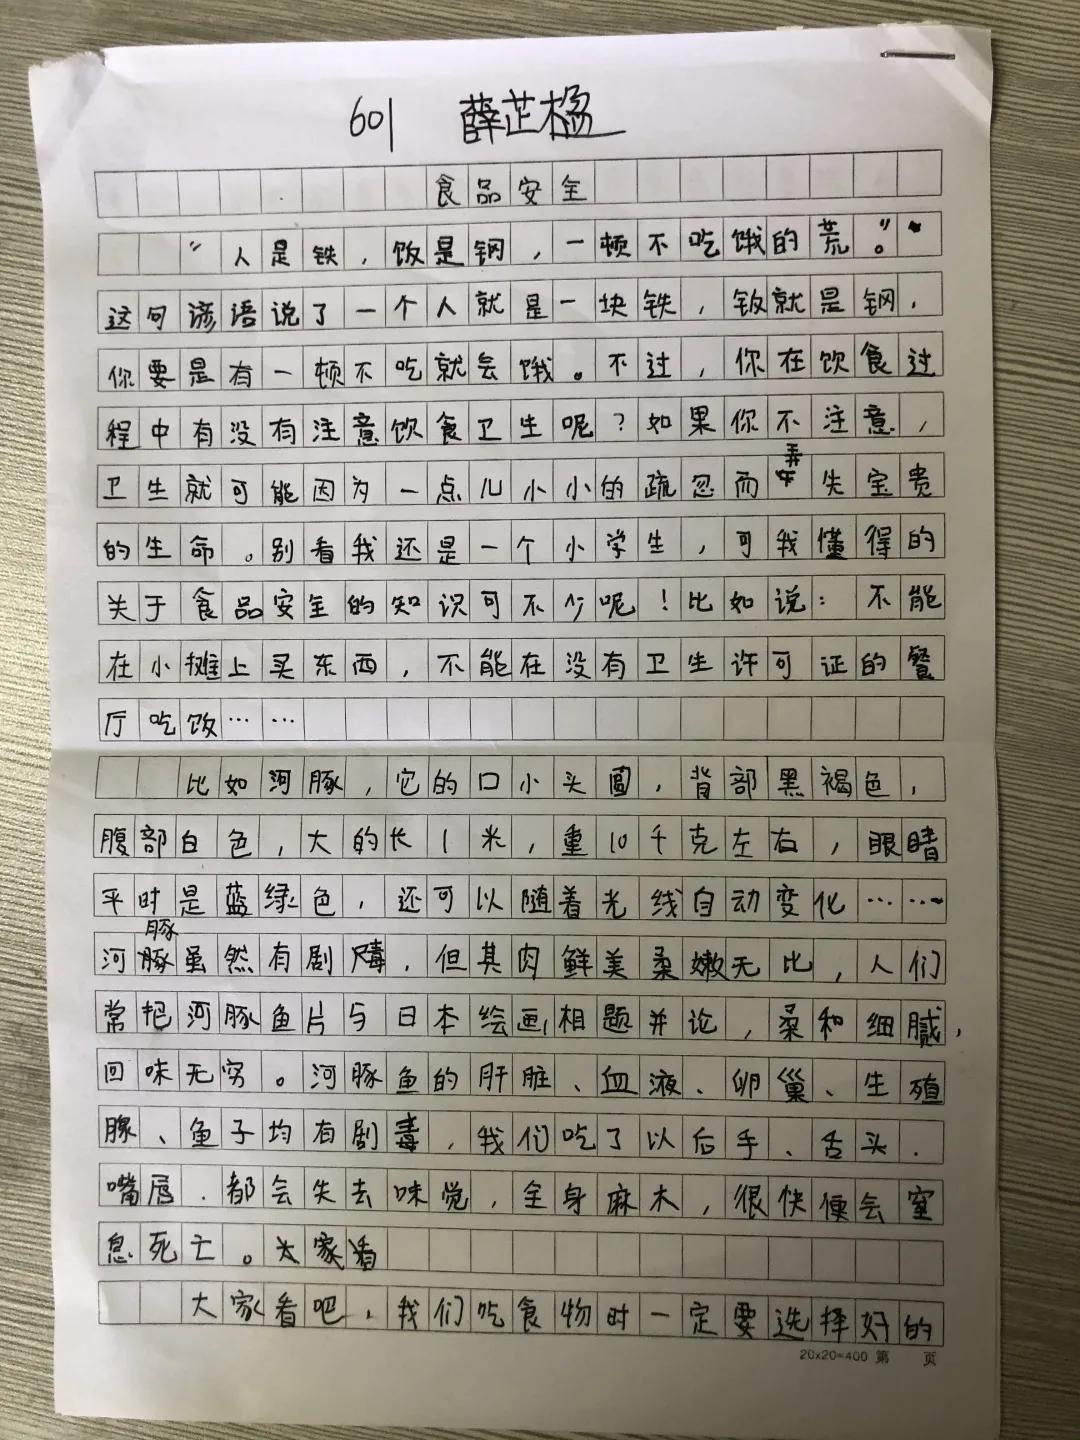 601 薛芷楹
食品安全
“人是铁，饭是钢，一顿不吃饿的荒。”
这句谚语说了一个人就是一块铁，饭就是钢，
你要是有一顿不吃就会饿。不过，你在饮食过
程中有没有注意饮食卫生呢？如果你不注意，
卫生就可能因为一点儿小小的疏忽而弄失宝贵
的生命。别看我还是一个小学生，可我懂得的
关于食品安全的知识可不少呢！比如说：不能
在小摊上买东西，不能在没有卫生许可证的餐
厅吃饭……
比如河豚，它的口小头圆，背部黑褐色，
腹部白色，大的长1米，重10千克左右，眼睛
平时是蓝绿色，还可以随着光线自动变化……
河豚虽然有剧毒，但其肉鲜美柔嫩无比，人们
常把河豚鱼片与日本绘画相题并论，柔和细腻，
回味无穷。河豚鱼的肝脏、血液、卵巢、生殖
腺、鱼子均有剧毒，我们吃了以后手、舌头、
嘴唇、都会失去味觉，全身麻木，很快便会窒
息死亡。大家看
大家看吧，我们吃食物时一定要选择好的
20×20=400 第 页